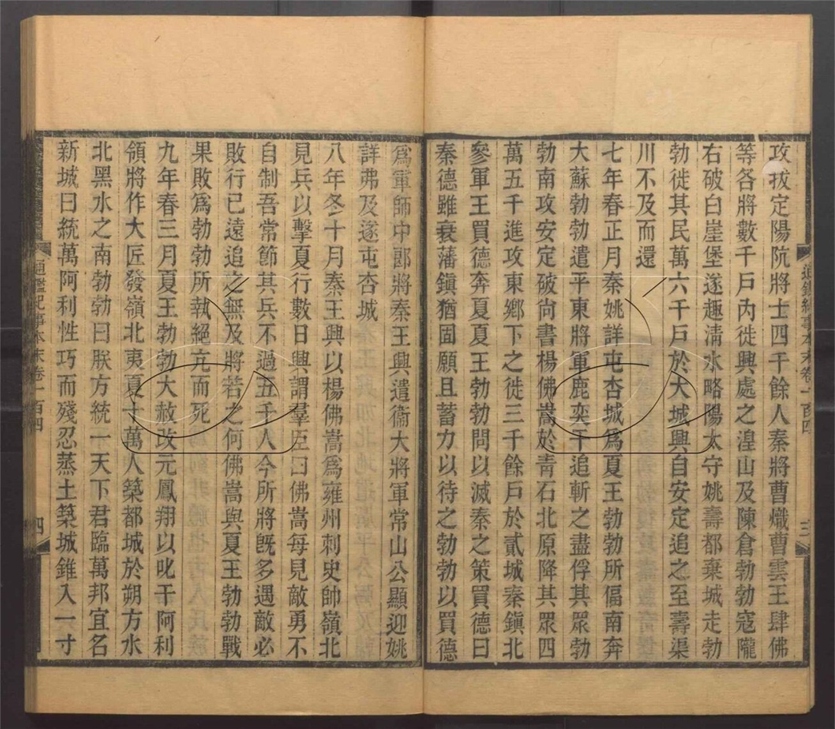 攻拔定陽阬將士四千餘人秦將曹熾曹雲王肆佛
等各將數千戶內徙興處之湟山及陳倉勃勃寇隴
右破白崖堡遂趣清水略陽太守姚壽都棄城走勃
勃徙其民萬六千戶於大城興自安定追之至壽渠
川不及而還
七年春正月秦姚詳屯杏城爲夏王勃勃所偪南奔
大蘇勃勃遣平東將軍鹿奕干追斬之盡俘其眾勃
勃南攻安定破尚書楊佛嵩於青石北原降其眾四
萬五千進攻東鄉下之徙三千餘戶於貳城秦鎮北
參軍王買德奔夏夏王勃勃問以滅秦之策買德曰
秦德雖衰藩鎮猶固願且蓄力以待之勃勃以買德
通鑑紀事本末卷一百四
三
爲軍師中郎將秦王興遣衞大將軍常山公顯迎姚
詳弗及遂屯杏城
八年冬十月秦王興以楊佛嵩爲雍州刺史帥嶺北
見兵以擊夏行數日興謂羣臣曰佛嵩每見敵勇不
自制吾常節其兵不過五千人今所將既多遇敵必
敗行已遠追之無及將若之何佛嵩與夏王勃勃戰
果敗爲勃勃所執絕亢而死
九年春三月夏王勃勃大赦改元鳳翔以叱干阿利
領將作大匠發嶺北夷夏十萬人築都城於朔方水
北黑水之南勃勃曰朕方統一天下君臨萬邦宜名
新城曰統萬阿利性巧而殘忍蒸土築城錐入一寸
通鑑紀事本末卷一百四
四